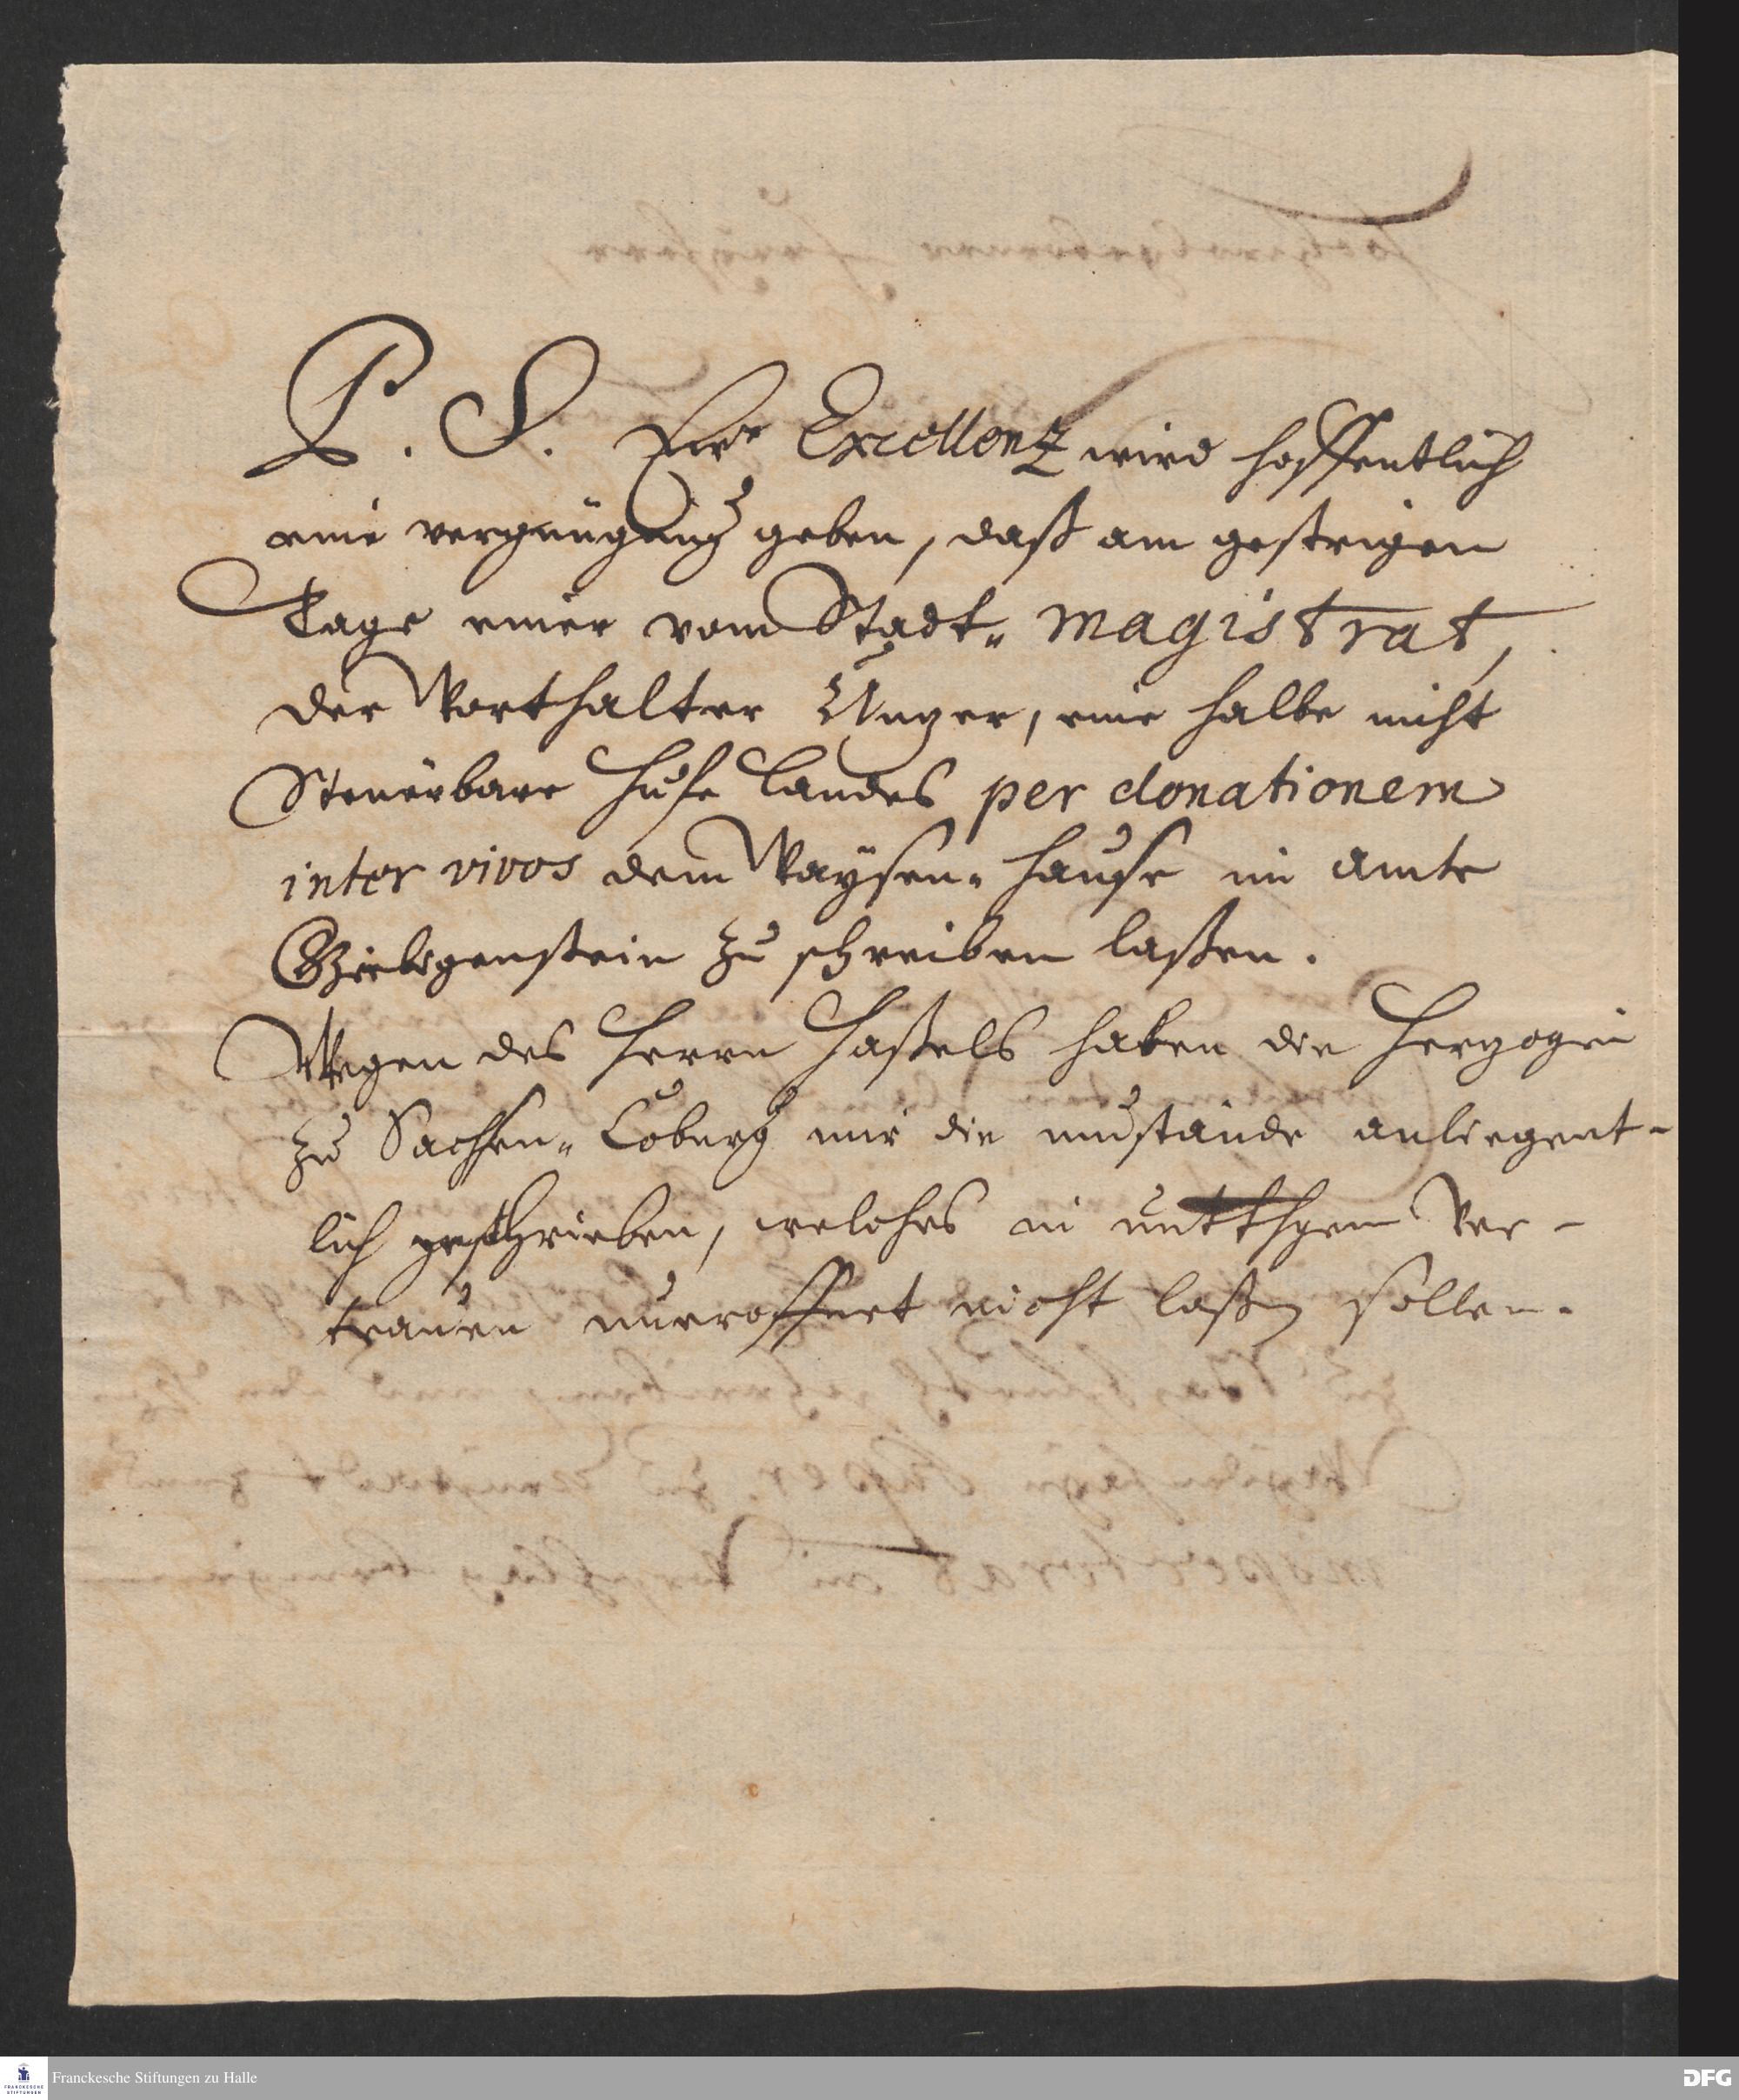 P. S. Ewr Excellentz wird hoffentlich
eine vergnügung geben, daß am gestrigen
Tage einer vom Stadt-magistrat,
der Worthalter Unger, eine halbe nicht
Steuerbare Hufe Landes per donationem
inter vivos dem Waysen-hause im Amte
Giebigenstein zu schreiben laßen.
Wegen des Herrn Haßels haben die Herzogin
zu Sachsen-Coburg mir die umstände anliegent-
lich geschrieben, welches in untthgem Ver-
trauen uneroffnet nicht laßen sollen.
Franckesche Stiftungen zu Halle
FRANCKESCHE STIFTUNGEN
DFG